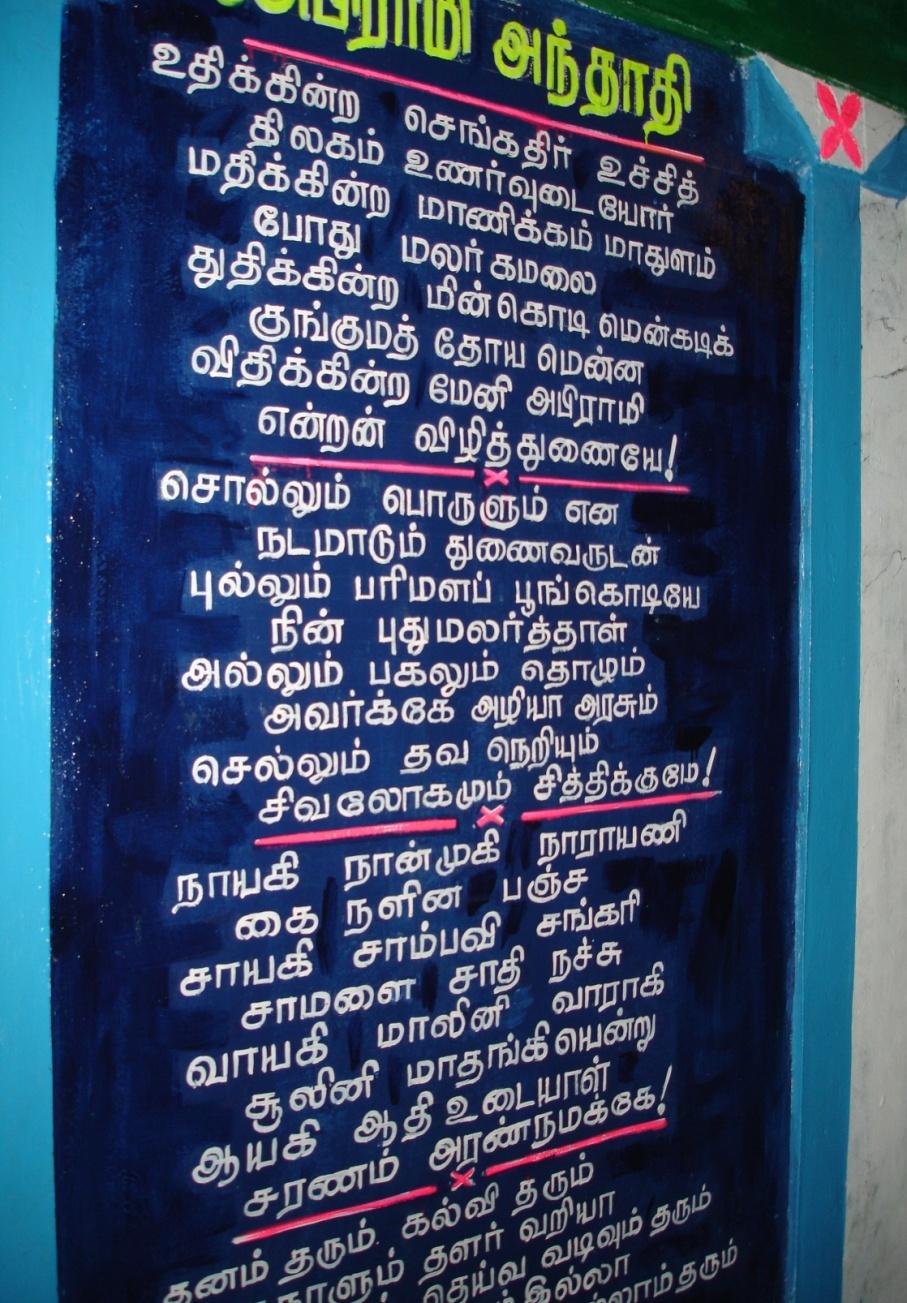 அபிராமி அந்தாதி
உதிக்கின்ற செங்கதிர் உச்சித்
திலகம் உணர்வுடையோர்
மதிக்கின்ற மாணிக்கம் மாதுளம்
போது மலர்கமலை
துதிக்கின்ற மின்கொடி மென்கடிக்
குங்குமத் தோயமென்ன
விதிக்கின்ற மேனி அபிராமி
என்றன் விழித்துணையே!
சொல்லும் பொருளும் என
நடமாடும் துணைவருடன்
புல்லும் பரிமளப் பூங்கொடியே
நின் புதுமலர்த்தாள்
அல்லும் பகலும் தொழும்
அவர்க்கே அழியா அரசும்
செல்லும் தவ நெறியும்
சிவலோகமும் சித்திக்குமே!
நாயகி நான்முகி நாராயணி
கை நளின பஞ்ச
சாயகி சாம்பவி சங்கரி
சாமளை சாதி நச்சு
வாயகி மாலினி வாராகி
சூலினி மாதங்கியென்று
ஆயகி ஆதி உடையாள்
சரணம் அரண்நமக்கே!
தனம் தரும் கல்வி தரும்
நாளும் தளர் வறியா
தெய்வ வடிவும் தரும்
இல்லா
தரும்